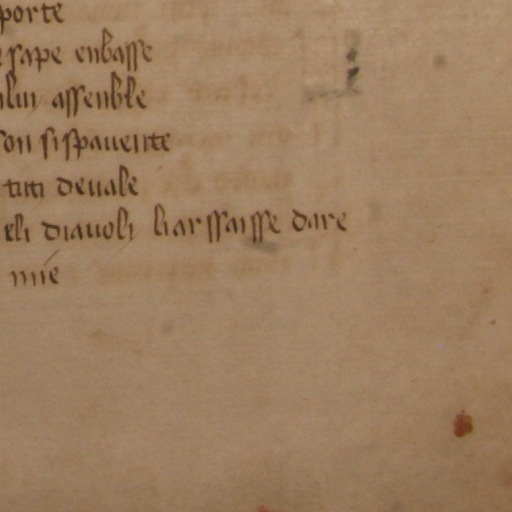 porte
sape enbasse
lui assenble
son si spauente
tuti deuale
eli diauoli li arssaisse dare
mie